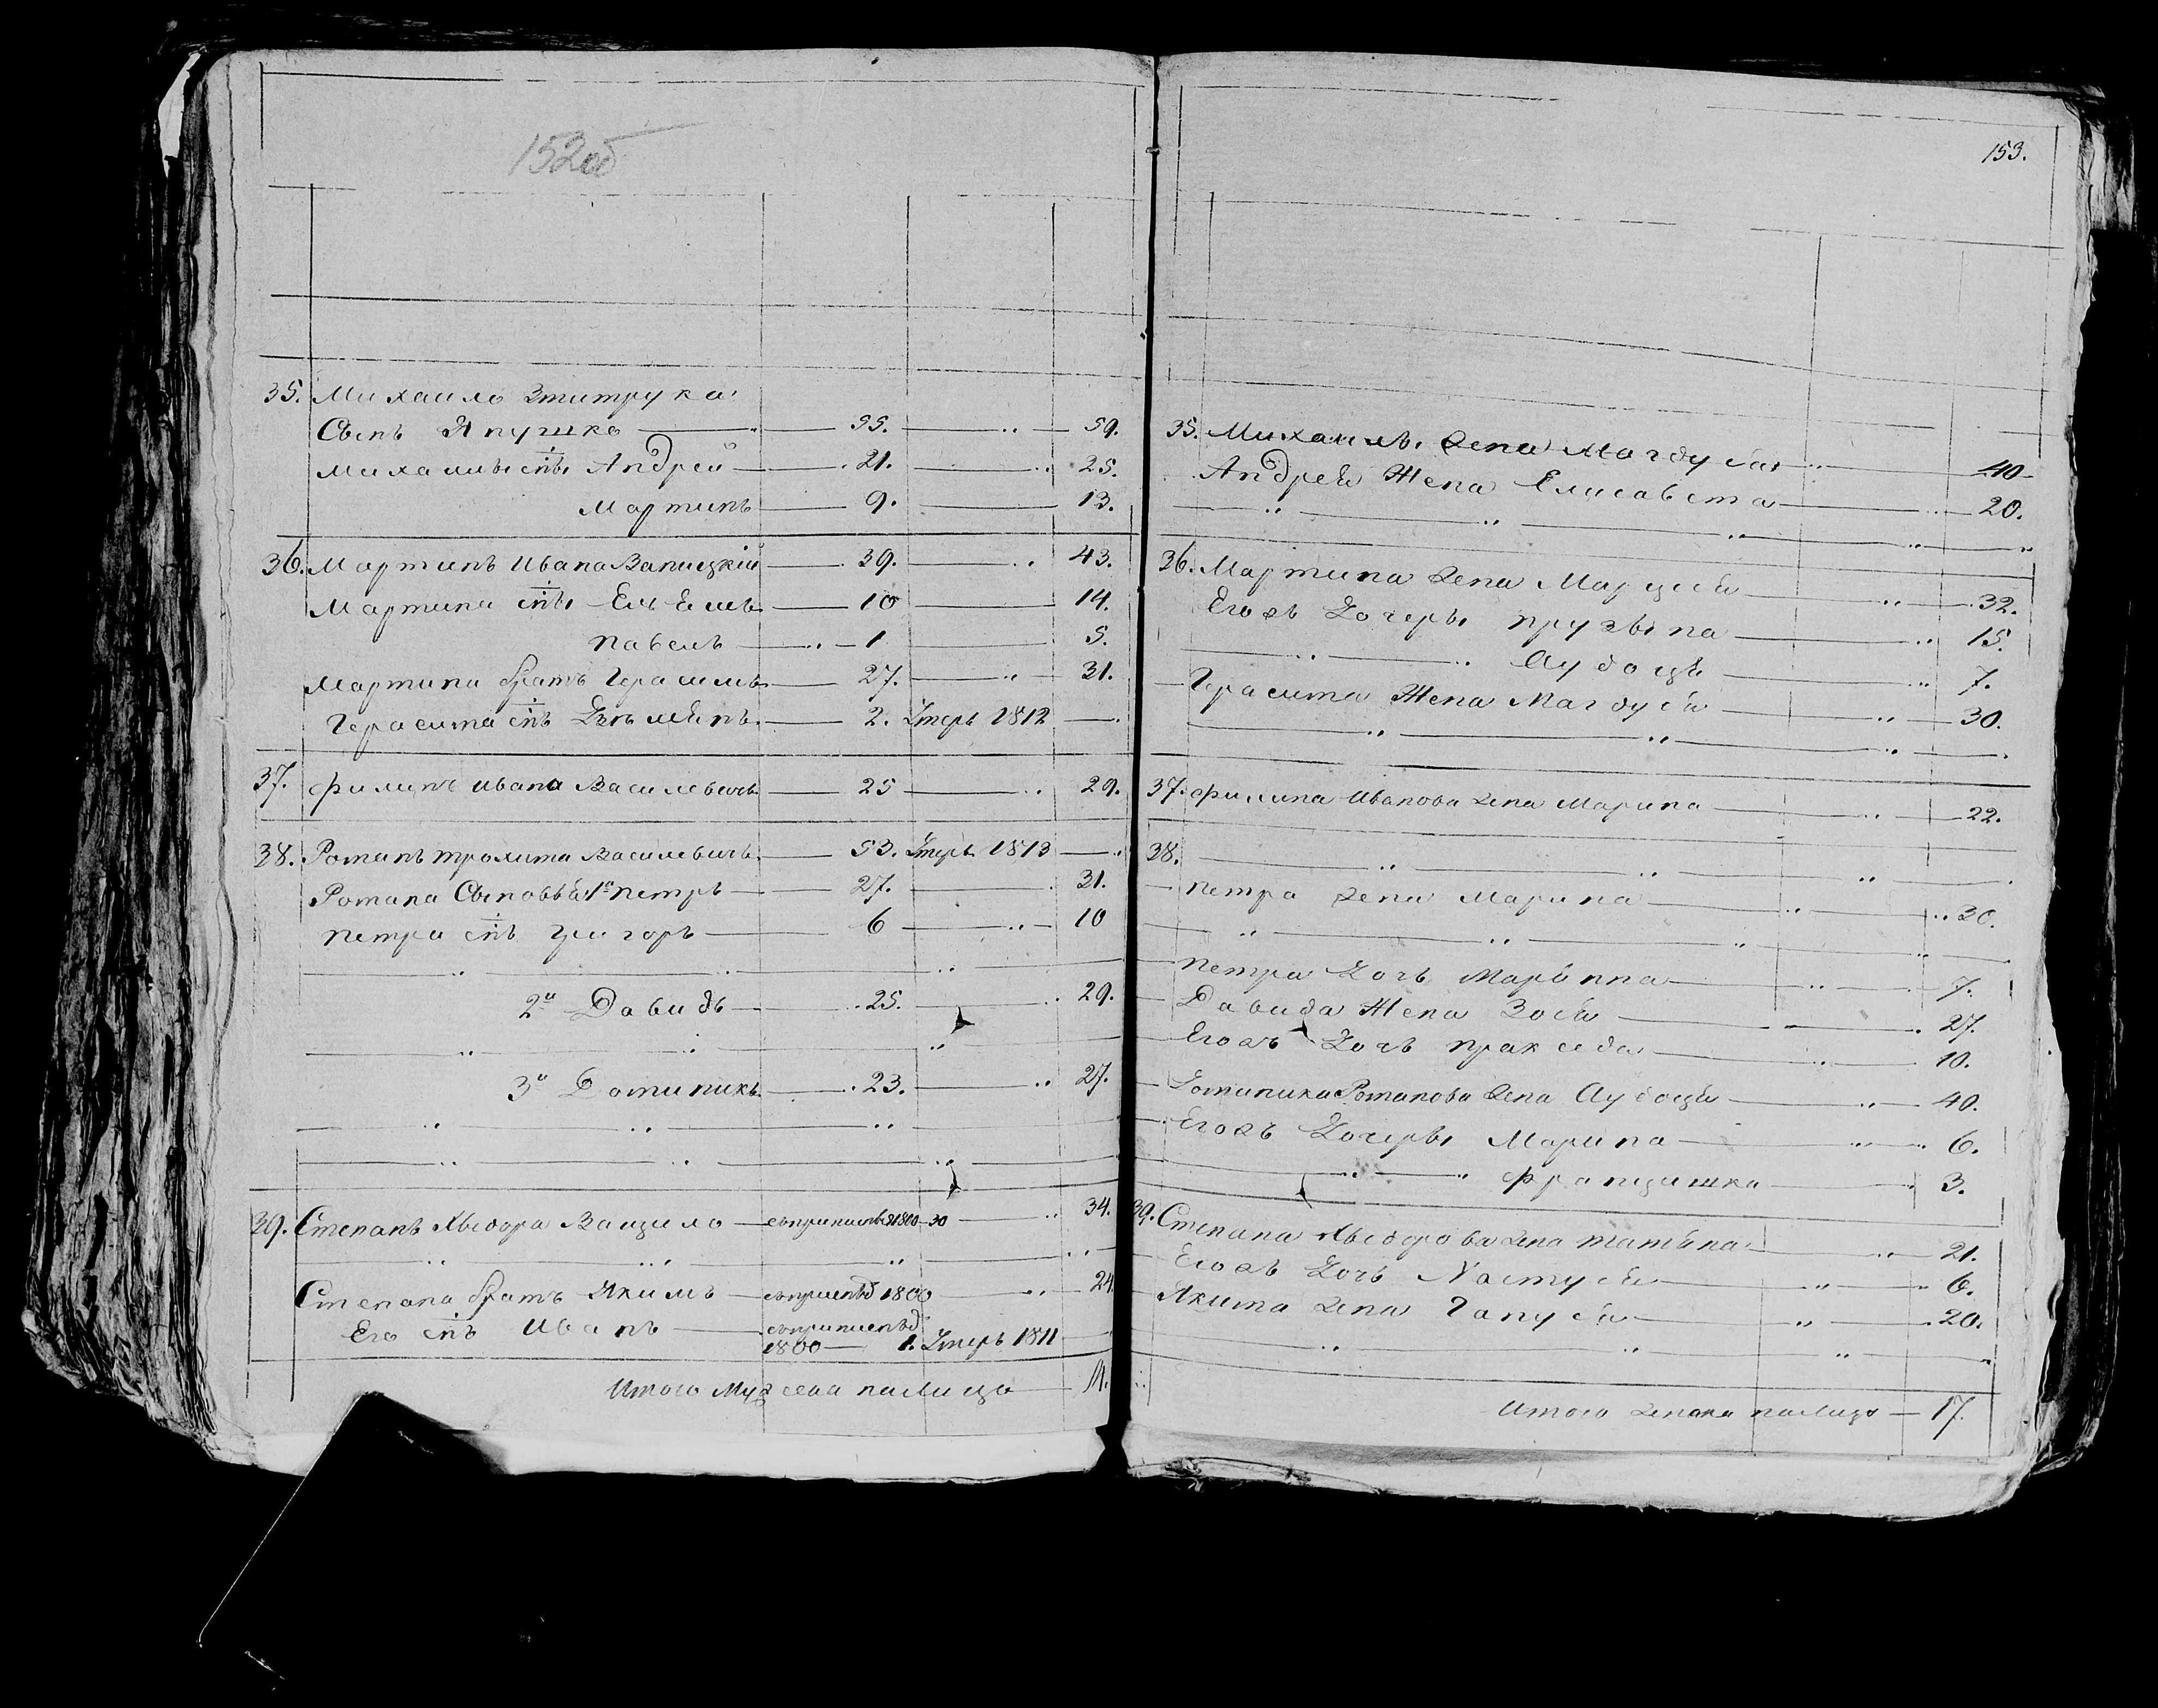 152об
35. Михаило Змитрука
Сынъ Япушко — 55. — „ — 59.
Михаилы снъ Андрей — 21. — „ 25.
Мартинъ — 9. — 13.
36. Мартинъ Ивана Запицкій — 39. — „ 43.
Мартина снъ — 10 — 14.
Павелъ — „ — 1 — 5.
Мартина братъ Герасимъ — 27. — „ — 31.
Герасима снъ — 2. Умеръ 1812 —
37. Филипъ Ивана Василевичъ — 25 — „ 29.
38. Романъ Трохима Василевичъ — 53. Умеръ 1813 — „
Романа Сыновья 1й Петръ — 27. — 31.
Петра снъ Григоръ — 6 — „ — 10
— „ — „ — „ —
2й Давидъ — 25. — „ 29.
— „ — „ — „
3й Доминикъ — 23. — „ 27.
— „ — „ — „
— „ — „ — „ —
39. Степанъ Хведора Ванцило — 1800 — 30 — „ 34.
— „ — „ — „ — „ —
Степана братъ Якимъ — 1800 — „ 24
Его снъ Иванъ —
1800 — 1. Умеръ 1811 —
Итого Мужеска налицо —
153.
35. Жена Магдуся — „ — 40 -
Андрея Жена Елисавета — „ — 20.
— „ — „ — „ — „ — „
36. Мартина Жена Марцеля — „ — 32.
Егожъ Дочеры Прузына — „ 15.
— „ — „ Аудоця — „ 7.
Герасима Жена Магдуся — „ — 30.
— „ — „ — „ — .
37. Филипа Иванова Жена Марина — „ — 22.
38. — „ — „ — „ — .
— Петра Жена Марина — „ — „ 30.
— „ — „ — „ — „ —
— Петра Дочь Марянна — „ — 7.
— Давида Жена Зося — — . 27.
Егожъ Дочь Пракседа — „ — 10.
— Доминика Романова Жена Аудоця — „ — 40.
— Егожъ Дочеры Марина — „ — 6.
— „ — „ Францишка — 3.
39. Степана Хведорова Жена Татяна — „ — 21.
Егожъ Дочь Настуся — „ — 6.
— Якима Жена Гапуся — „ — 20.
— „ — „ — „ —
Итого Женска налицо — 17.